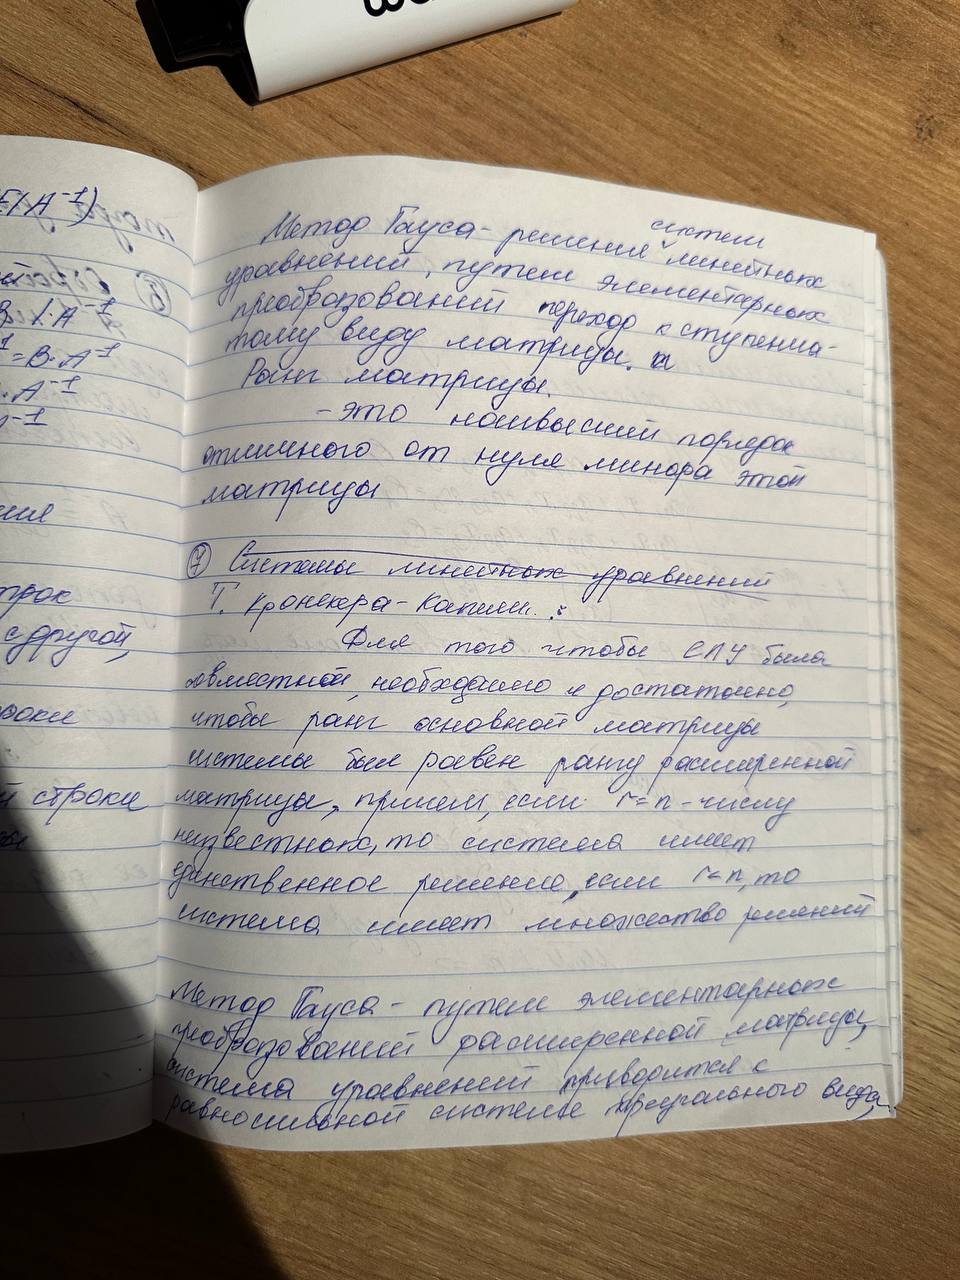 Е/·A⁻¹)
В /·A⁻¹
= В·A⁻¹
·A⁻¹
трок
с другой,
роки
й строки
систем
Метод Гауса - решения линейных
уравнений, путем элементарных
преобразований переход к ступенча-
тому виду матрицы.
Ранг матрицы.
- это наивысший порядок
отличного от нуля минора этой
матрицы
⑦ Системы линейных уравнений
Т. Кронекера - Капели :
Для того чтобы СЛУ была
совместной, необходимо и достаточно,
чтобы ранг основной матрицы
системы был равен рангу расширенной
матрицы, причем, если r = n - числу
неизвестных, то система имеет
единственное решение, если r < n, то
система имеет множество решений
Метод Гауса - путем элементарных
преобразований расширенной матрицы,
система уравнений приводится к
равносильной системе треугольного вида,